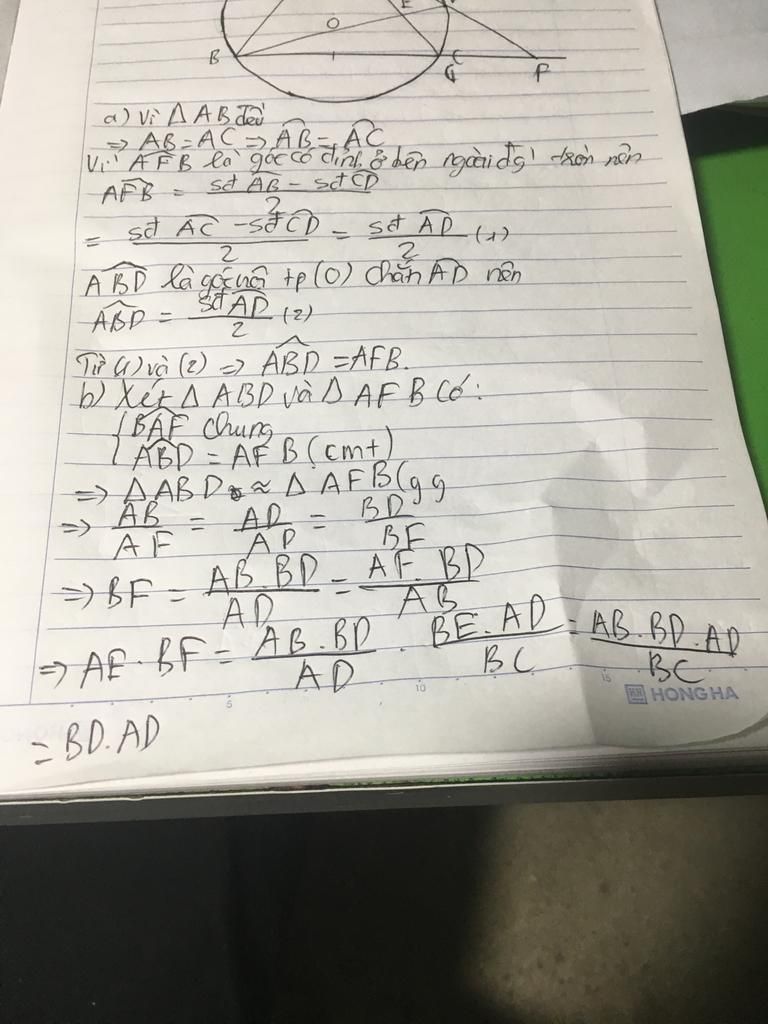 E
O
B
C
F
a) Vì Δ AB đều
=> AB = AC => AB = AC
Vì AFB là góc có đỉnh ở bên ngoài đg' tròn nên
AFB = sđ AB - sđ CD / 2
= sđ AC - sđ CD / 2 = sđ AD / 2 (1)
ABD là góc nội tp (O) chắn AD nên
ABD = sđ AD / 2 (2)
Từ (1) và (2) => ABD = AFB.
b) Xét Δ ABD và Δ AFB có:
{ BAF chung
ABD = AFB (cmt)
=> Δ ABD ≈ Δ AFB (gg
=> AB / AF = AD / AD = BD / BF
=> BF = AB . BD / AD = AF . BD / AB
=> AE . BF = AB . BD / AD . BE . AD / BC = AB . BD . AD / BC
5 10 15
HONG HA
= BD. AD